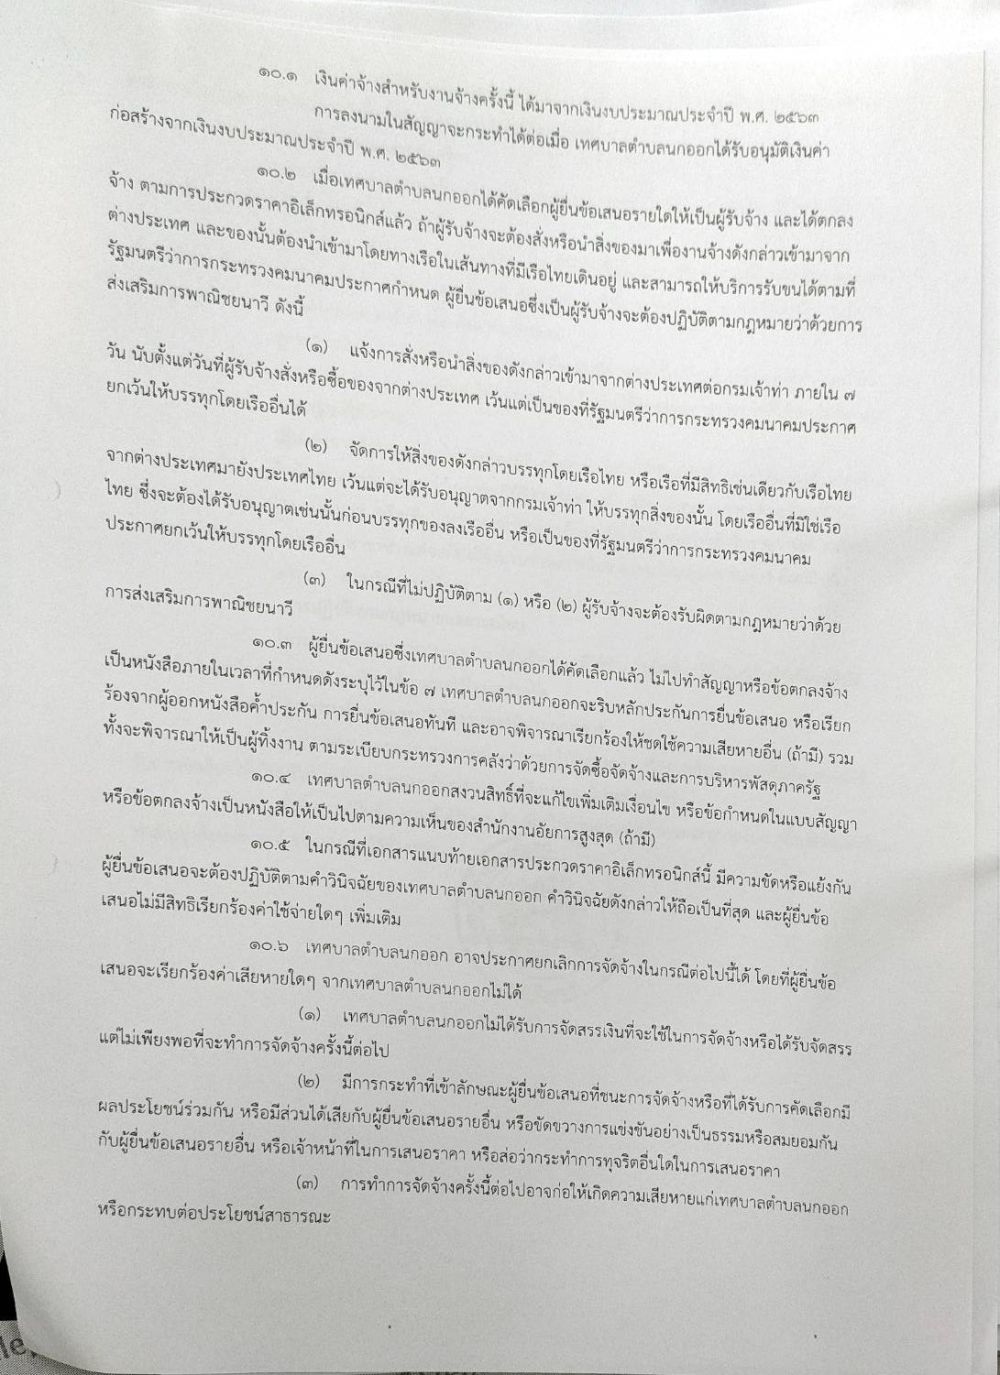 ๑๐.๑ เงินค่าจ้างสำหรับงานจ้างครั้งนี้ ได้มาจากเงินงบประมาณประจำปี พ.ศ. ๒๕๖๓
การลงนามในสัญญาจะกระทำได้ต่อเมื่อ เทศบาลตำบลนกออกได้รับอนุมัติเงินค่า
ก่อสร้างจากเงินงบประมาณประจำปี พ.ศ. ๒๕๖๓
๑๐.๒ เมื่อเทศบาลตำบลนกออกได้คัดเลือกผู้ยื่นข้อเสนอรายใดให้เป็นผู้รับจ้าง และได้ตกลง
จ้าง ตามการประกวดราคาอิเล็กทรอนิกส์แล้ว ถ้าผู้รับจ้างจะต้องสั่งหรือนำสิ่งของมาเพื่องานจ้างดังกล่าวเข้ามาจาก
ต่างประเทศ และของนั้นต้องนำเข้ามาโดยทางเรือในเส้นทางที่มีเรือไทยเดินอยู่ และสามารถให้บริการรับขนได้ตามที่
รัฐมนตรีว่าการกระทรวงคมนาคมประกาศกำหนด ผู้ยื่นข้อเสนอซึ่งเป็นผู้รับจ้างจะต้องปฏิบัติตามกฎหมายว่าด้วยการ
ส่งเสริมการพาณิชยนาวี ดังนี้
(๑) แจ้งการสั่งหรือนำสิ่งของดังกล่าวเข้ามาจากต่างประเทศต่อกรมเจ้าท่า ภายใน ๗
วัน นับตั้งแต่วันที่ผู้รับจ้างสั่งหรือซื้อของจากต่างประเทศ เว้นแต่เป็นของที่รัฐมนตรีว่าการกระทรวงคมนาคมประกาศ
ยกเว้นให้บรรทุกโดยเรืออื่นได้
(๒) จัดการให้สิ่งของดังกล่าวบรรทุกโดยเรือไทย หรือเรือที่มีสิทธิเช่นเดียวกับเรือไทย
จากต่างประเทศมายังประเทศไทย เว้นแต่จะได้รับอนุญาตจากกรมเจ้าท่า ให้บรรทุกสิ่งของนั้น โดยเรืออื่นที่มิใช่เรือ
ไทย ซึ่งจะต้องได้รับอนุญาตเช่นนั้นก่อนบรรทุกของลงเรืออื่น หรือเป็นของที่รัฐมนตรีว่าการกระทรวงคมนาคม
ประกาศยกเว้นให้บรรทุกโดยเรืออื่น
(๓) ในกรณีที่ไม่ปฏิบัติตาม (๑) หรือ (๒) ผู้รับจ้างจะต้องรับผิดตามกฎหมายว่าด้วย
การส่งเสริมการพาณิชยนาวี
๑๐.๓ ผู้ยื่นข้อเสนอซึ่งเทศบาลตำบลนกออกได้คัดเลือกแล้ว ไม่ไปทำสัญญาหรือข้อตกลงจ้าง
เป็นหนังสือภายในเวลาที่กำหนดดังระบุไว้ในข้อ ๗ เทศบาลตำบลนกออกจะริบหลักประกันการยื่นข้อเสนอ หรือเรียก
ร้องจากผู้ออกหนังสือค้ำประกัน การยื่นข้อเสนอทันที และอาจพิจารณาเรียกร้องให้ชดใช้ความเสียหายอื่น (ถ้ามี) รวม
ทั้งจะพิจารณาให้เป็นผู้ทิ้งงาน ตามระเบียบกระทรวงการคลังว่าด้วยการจัดซื้อจัดจ้างและการบริหารพัสดุภาครัฐ
๑๐.๔ เทศบาลตำบลนกออกสงวนสิทธิ์ที่จะแก้ไขเพิ่มเติมเงื่อนไข หรือข้อกำหนดในแบบสัญญา
หรือข้อตกลงจ้างเป็นหนังสือให้เป็นไปตามความเห็นของสำนักงานอัยการสูงสุด (ถ้ามี)
๑๐.๕ ในกรณีที่เอกสารแนบท้ายเอกสารประกวดราคาอิเล็กทรอนิกส์นี้ มีความขัดหรือแย้งกัน
ผู้ยื่นข้อเสนอจะต้องปฏิบัติตามคำวินิจฉัยของเทศบาลตำบลนกออก คำวินิจฉัยดังกล่าวให้ถือเป็นที่สุด และผู้ยื่นข้อ
เสนอไม่มีสิทธิเรียกร้องค่าใช้จ่ายใดๆ เพิ่มเติม
๑๐.๖ เทศบาลตำบลนกออก อาจประกาศยกเลิกการจัดจ้างในกรณีต่อไปนี้ได้ โดยที่ผู้ยื่นข้อ
เสนอจะเรียกร้องค่าเสียหายใดๆ จากเทศบาลตำบลนกออกไม่ได้
(๑) เทศบาลตำบลนกออกไม่ได้รับการจัดสรรเงินที่จะใช้ในการจัดจ้างหรือได้รับจัดสรร
แต่ไม่เพียงพอที่จะทำการจัดจ้างครั้งนี้ต่อไป
(๒) มีการกระทำที่เข้าลักษณะผู้ยื่นข้อเสนอที่ชนะการจัดจ้างหรือที่ได้รับการคัดเลือกมี
ผลประโยชน์ร่วมกัน หรือมีส่วนได้เสียกับผู้ยื่นข้อเสนอรายอื่น หรือขัดขวางการแข่งขันอย่างเป็นธรรมหรือสมยอมกัน
กับผู้ยื่นข้อเสนอรายอื่น หรือเจ้าหน้าที่ในการเสนอราคา หรือส่อว่ากระทำการทุจริตอื่นใดในการเสนอราคา
(๓) การทำการจัดจ้างครั้งนี้ต่อไปอาจก่อให้เกิดความเสียหายแก่เทศบาลตำบลนกออก
หรือกระทบต่อประโยชน์สาธารณะ